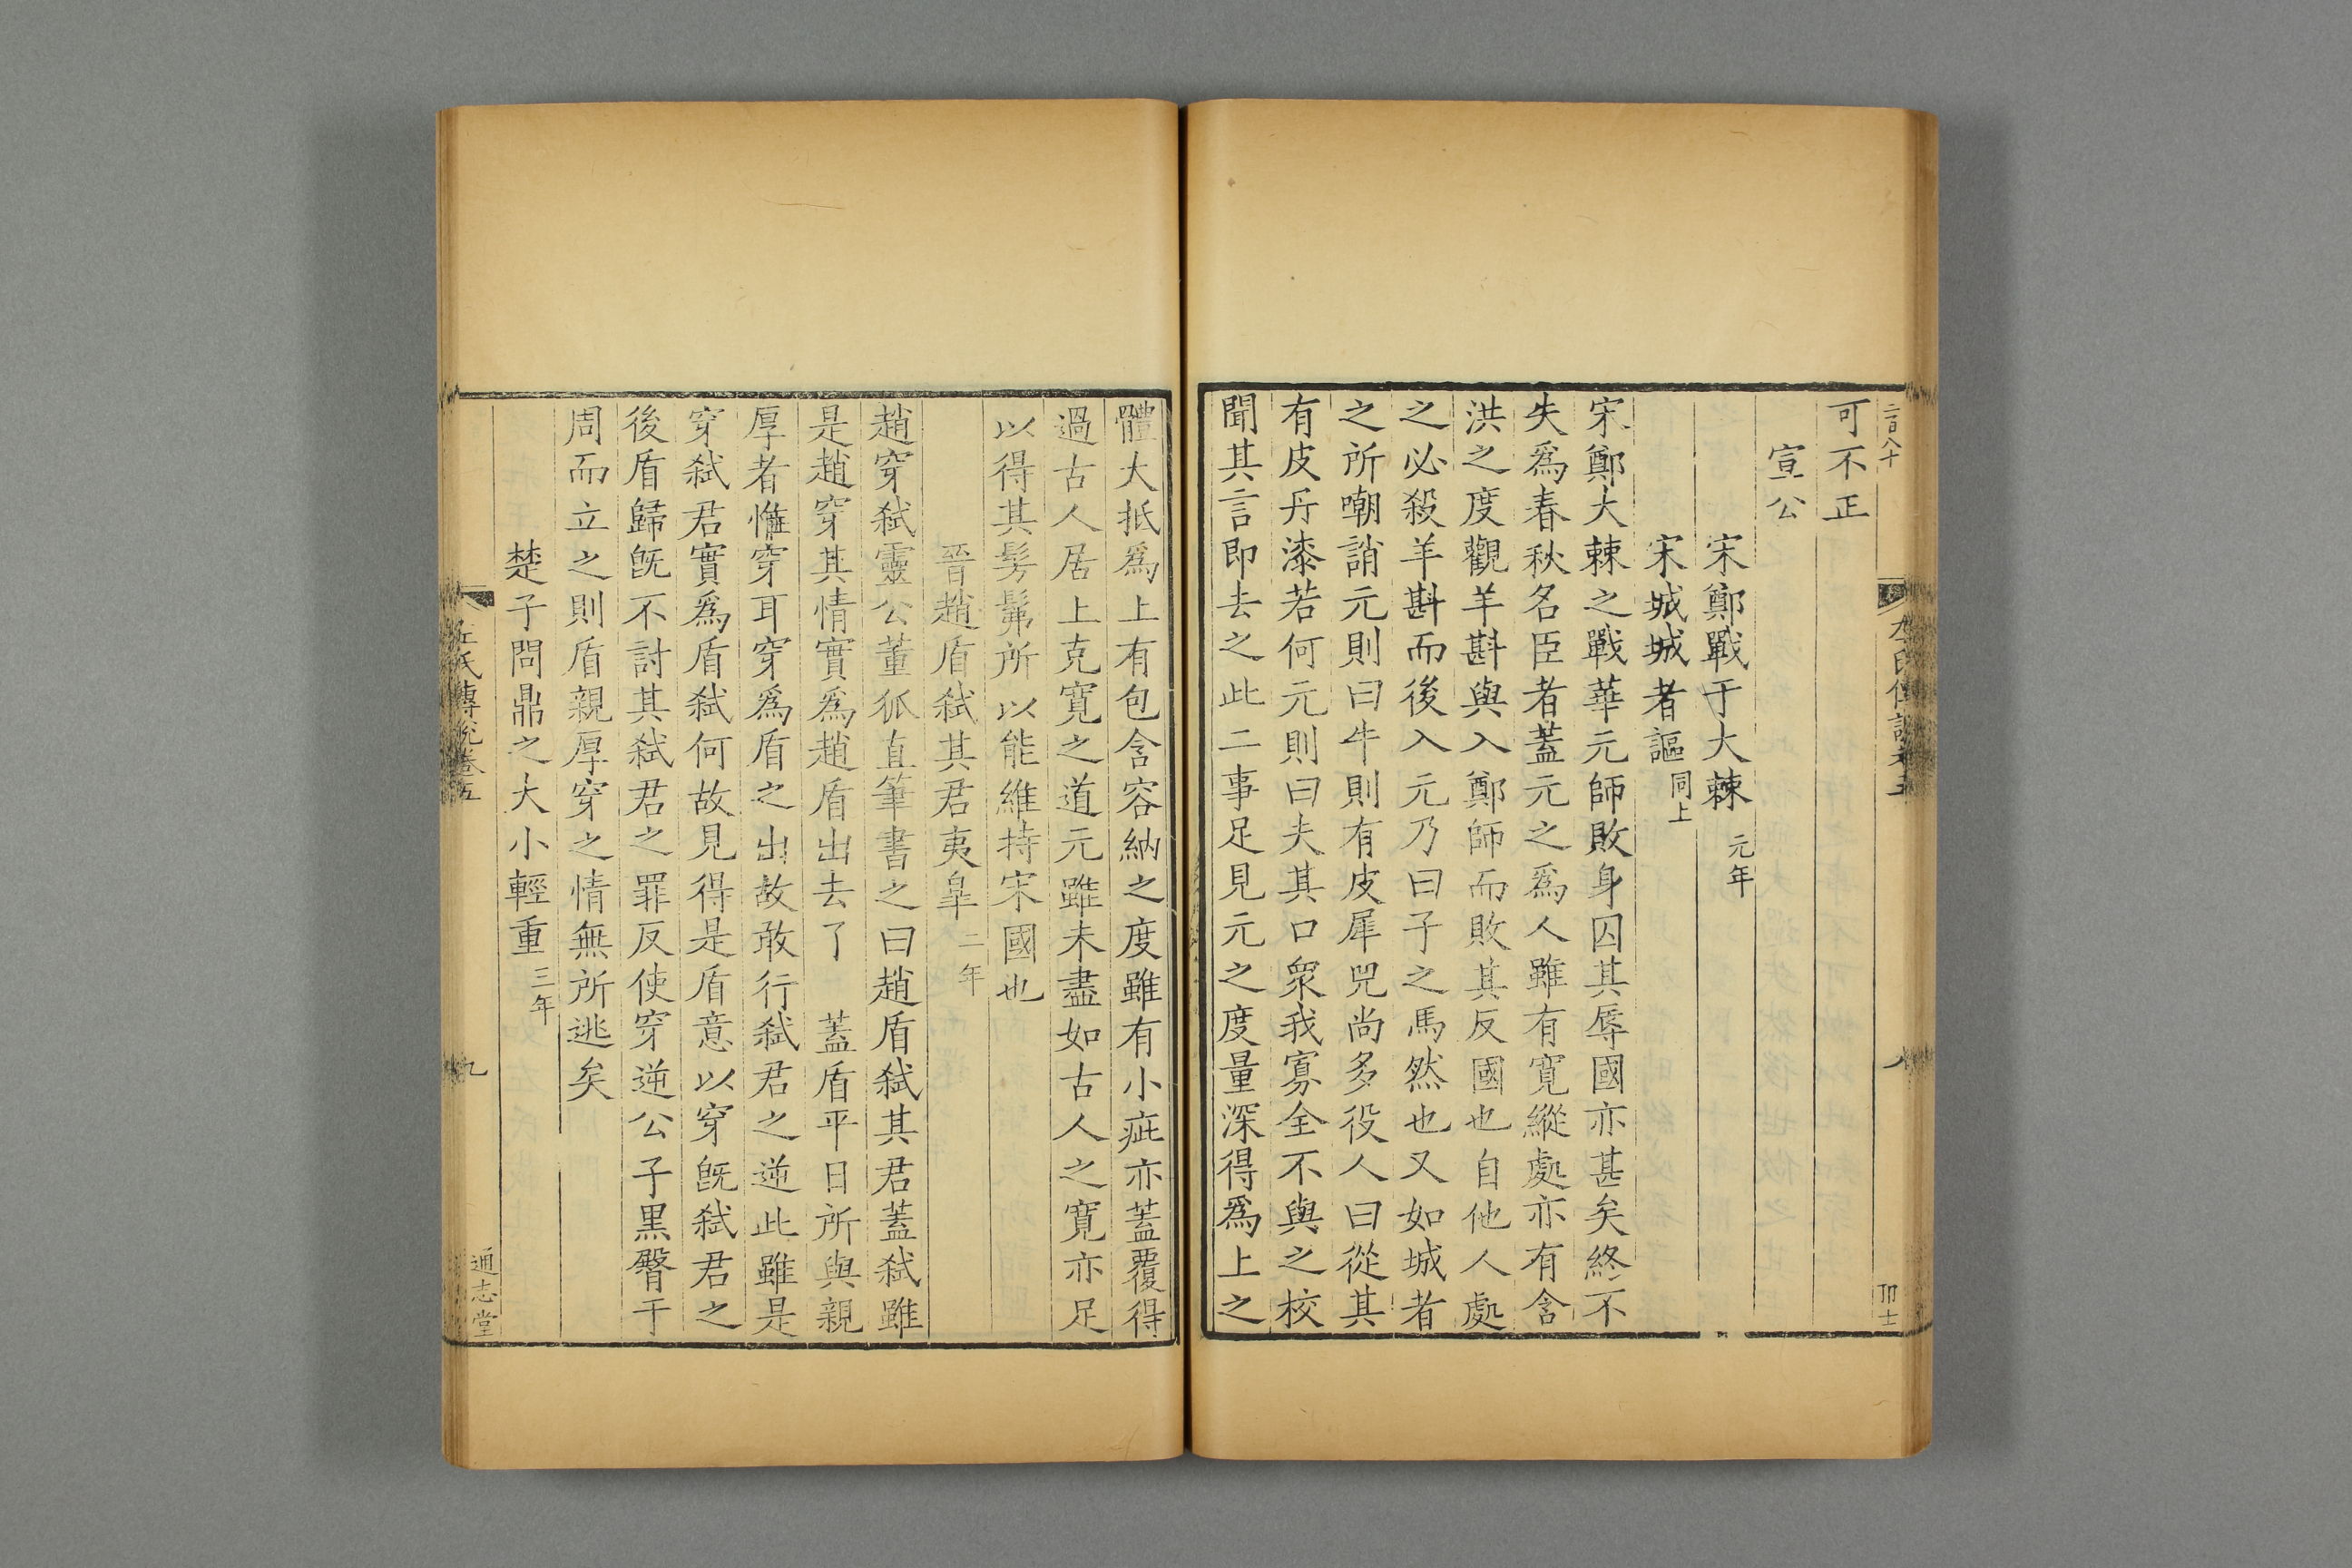 可不正
宣公
宋鄭戰于大棘元年
宋城城者謳同上
宋鄭大棘之戰華元師敗身囚其辱國亦甚矣終不
失爲春秋名臣者蓋元之爲人雖有寛縱處亦有含
洪之度觀羊斟與入鄭師而敗其反國也自他人處
之必殺羊斟而後入元乃曰子之馬然也又如城者
之所嘲誚元則曰牛則有皮犀兕尚多役人曰從其
有皮丹漆若何元則曰夫其口衆我寡全不與之校
聞其言即去之此二事足見元之度量深得爲上之
體大抵爲上有包含容納之度雖有小疵亦蓋覆得
過古人居上克寛之道元雖未盡如古人之寛亦足
以得其髣髴所以能維持宋國也
晉趙盾弑其君夷皐二年
趙穿弑靈公董狐直筆書之曰趙盾弑其君蓋弑雖
是趙穿其情實爲趙盾出去了 蓋盾平日所與親
厚者惟穿耳穿爲盾之出故敢行弑君之逆此雖是
穿弑君實爲盾弑何故見得是盾意以穿旣弑君之
後盾歸旣不討其弑君之罪反使穿逆公子黒臀于
周而立之則盾親厚穿之情無所逃矣
楚子問鼎之大小輕重三年
左氏傳說卷五
九
通志堂